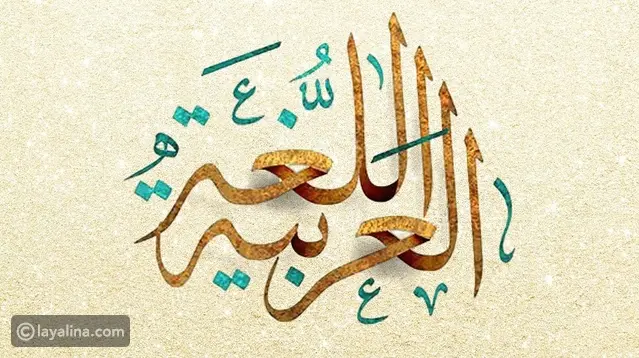 اللُّغَة
العربية
layalina.com